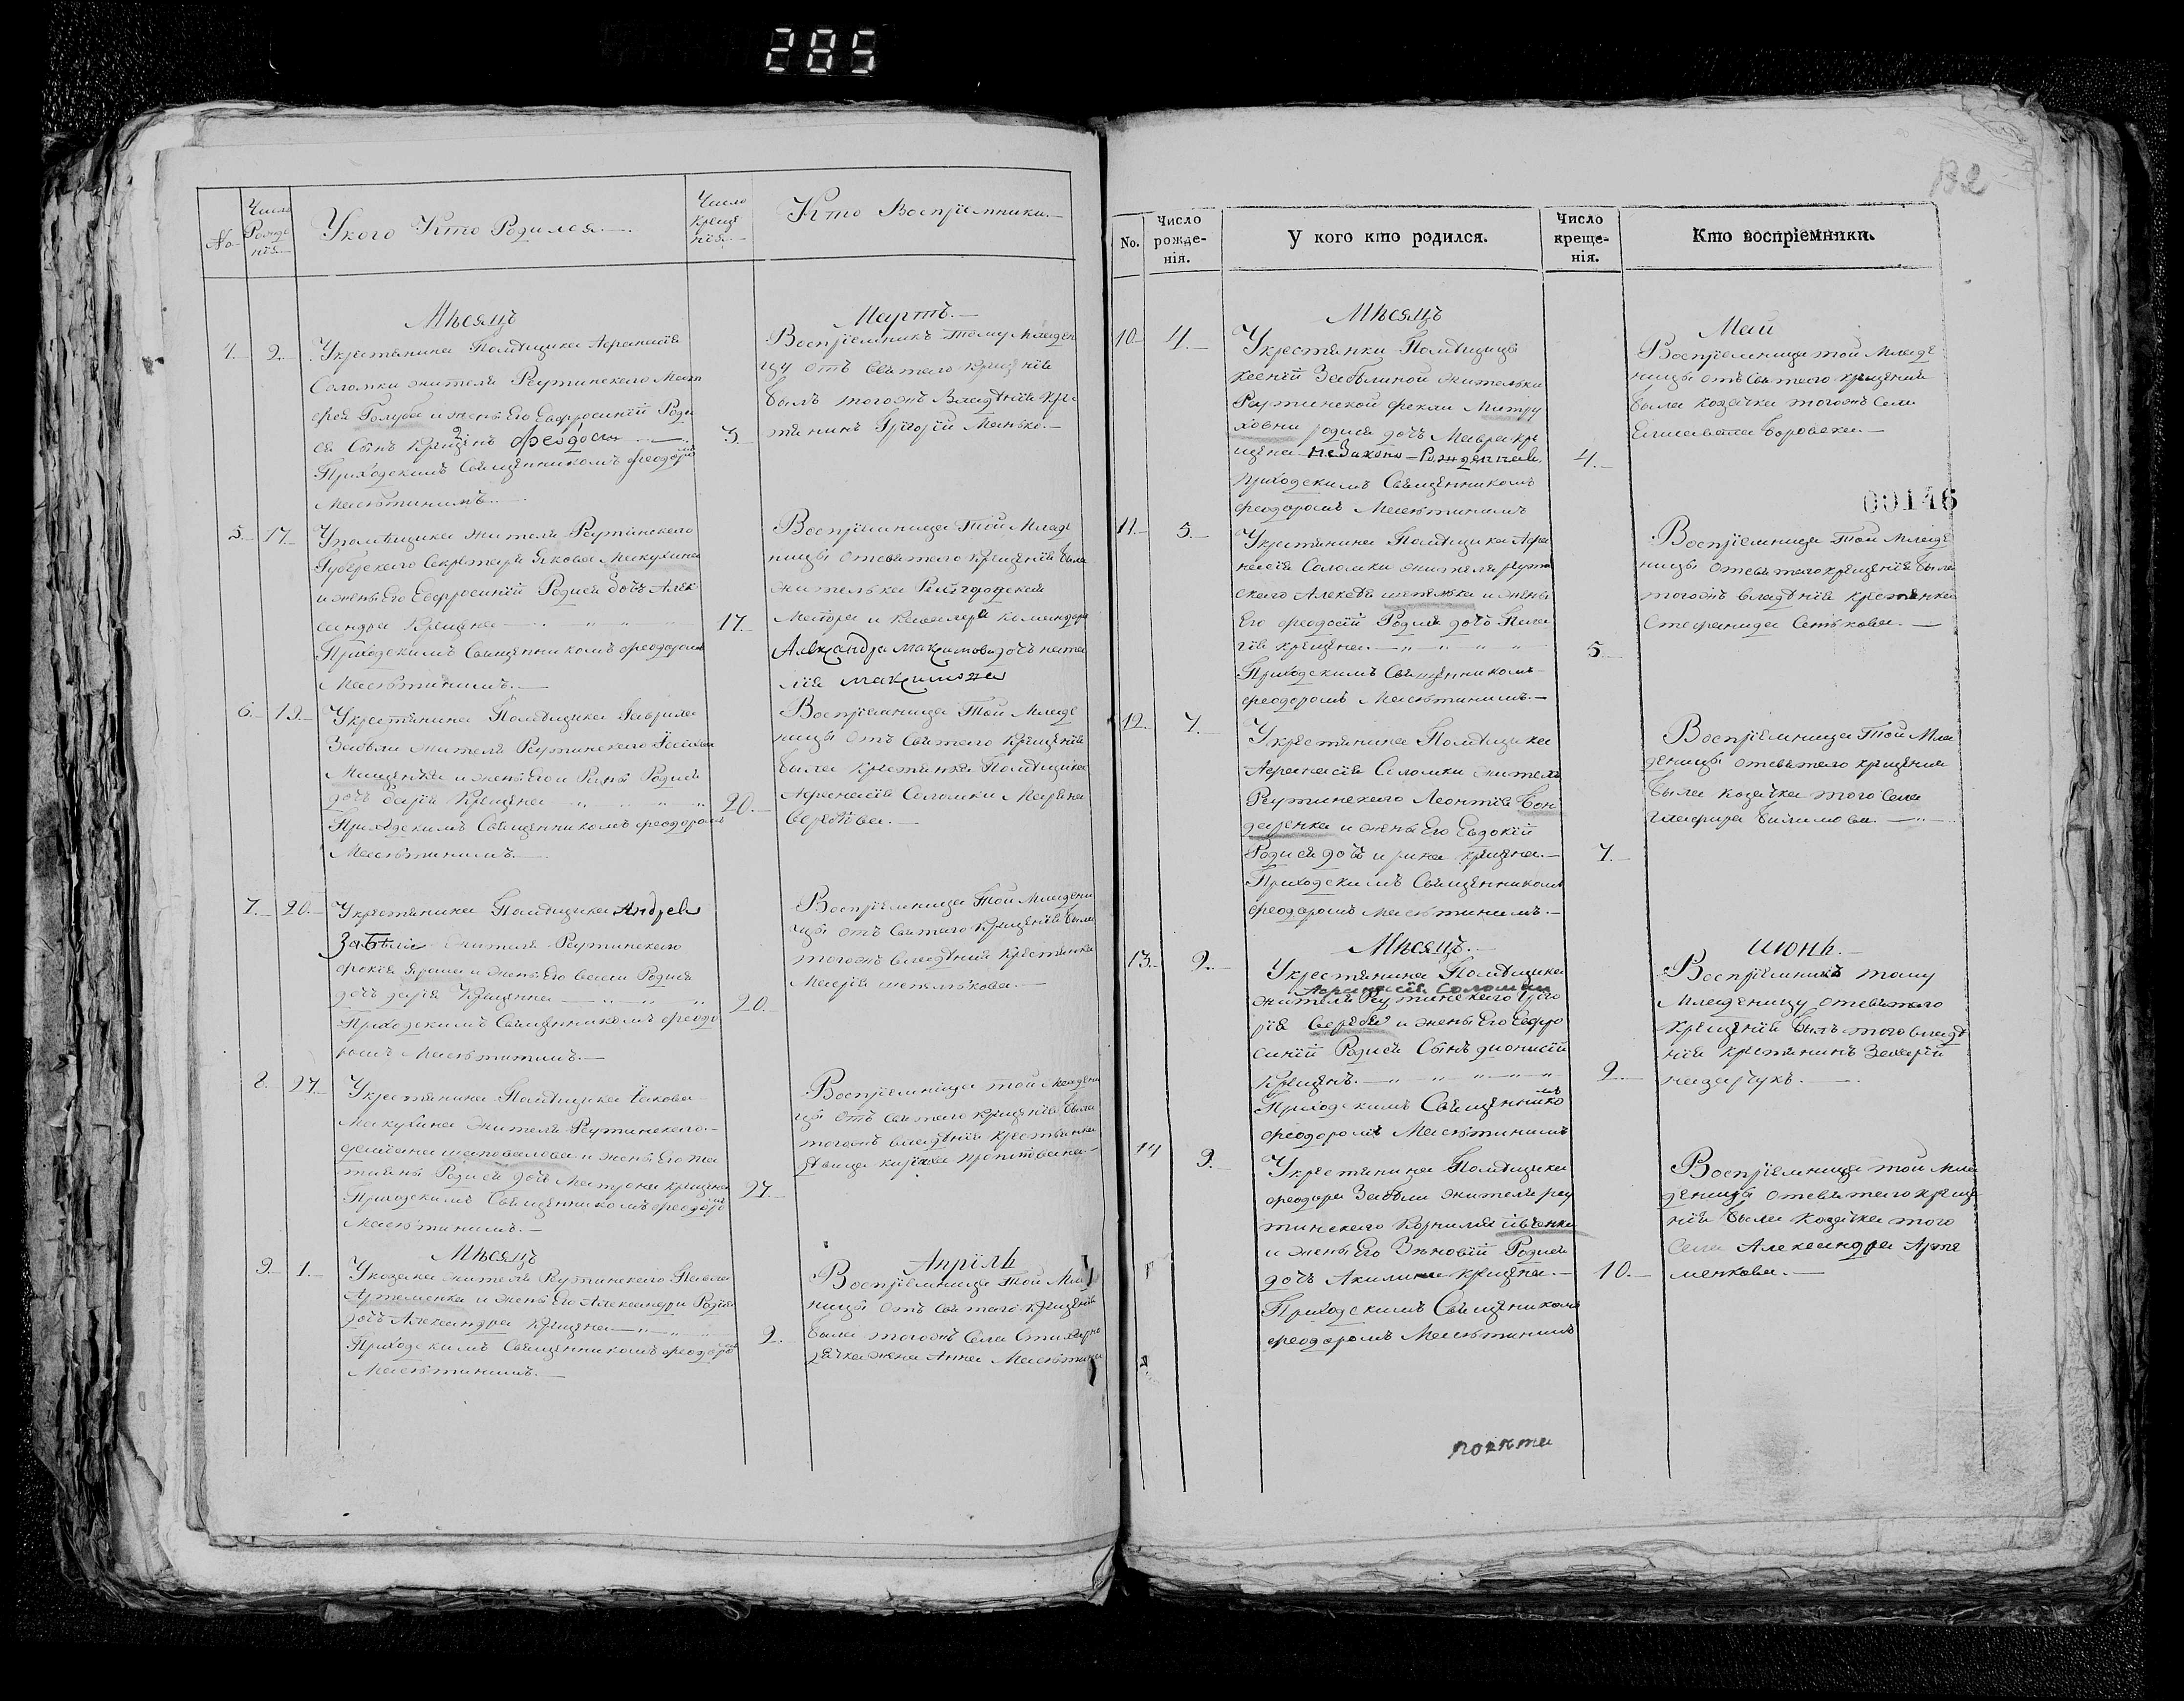 285
No.
Число Рожде нія.
У кого Кто Родился.
Число Креще нія.
Кто Воспріемники.
Мѣсяцъ
Мартъ.
4. 2.
У крестянина Помѣщика Афанасія
Соломки жителя Реутинского Мат
фея Голуба и жены Его Евфросиніи Роди
ся Сынъ Крещенъ Феодосій
Приходскимъ Священникомъ Феодоромъ
Масютинимъ.
3.
Воспріемникъ тому младен
цу отъ святаго крещенія
былъ тогожъ Владѣнія кре
тянинъ Григорій Манько.
5. 17.
У помѣщика жителя Реутинского
Губерского Секретаря Якова Макухина
и жены Его Евфросиніи Родися дочь Алек
сандра Крещена
Приходскимъ Священникомъ Феодоромъ
Масютинимъ.
17.
Воспріемница той младе
ницы отсвятаго крещенія была
жителька
Маіора и Кавалера
Александра Максимова дочь ната
лія Максимова
6. 19.
У крестянина Помѣщика Гавриила
Забѣли жителя Реутинского
Мищенка и жены Его Родися
дочь Дарія Крещена
Приходскимъ Священникомъ Феодоромъ
Масютинимъ.
20.
Воспріемница той младе
ницы отъ святаго крещенія
была крестянка Помѣщика
Афанасія Соломки Марѳа
Береѳова.
7. 20.
У крестянина Помѣщика Андрея
Забѣли жителя Реутинского
Фокія Яраша и жены Его Родися
дочь Дарія Крещенна
Приходскимъ Священникомъ Феодо
ромъ Масютинимъ.
20.
Воспріемница той младени
цы отъ святаго крещенія была
тогожъ владѣнія крестянка
Марія Шепелькова.
8. 27.
У крестянина Помѣщика Іакова
Макухина жителя Реутинского
Даміана Шаповалова и жены Его Та
тіаны Родися дочь Матрона крещена
Приходскимъ Священникомъ Феодоромъ
Масютинимъ.
27.
Воспріемница той младени
цы отъ святаго крещенія была
тогожъ владѣнія крестьянка
дѣвица
Мѣсяцъ
Апрѣль
9. 1.
У козака жителя Реутинского Павла
Артеменка и жены Его Александри Родися
дочь Александра Крещена
Приходскимъ Священникомъ Феодоромъ
Масютинимъ.
2.
Воспріемница той мла
ницы отъ святаго крещенія
была тогожъ села Стихарн
дячка жена Анна Масютина
132
No.
Число рожде-нія.
У кого кто родился.
Число креще-нія.
Кто воспріемники.
Мѣсяцъ
Май
10. 4.
У крестянки Помѣщицы
Ксеніи Забѣлиной жительки
Реутинской Феклы Митру
ховни родися дочь Мавра кре
щена незаконо-Рожденная
Приходскимъ Священникомъ
Феодоромъ Масютинимъ
4.
Воспріемница той младе
ницы отъ святаго крещенія
была козачка тогожъ села
Елисавета Боровска.
00146
11. 5.
У крестянина Помѣщика Афа
насія Соломки жителя реути
нского Алексѣя шепелька и жены
Его Феодосіи Родися дочь Пела
гія крещена
Приходскимъ Священникомъ
Феодоромъ Масютинимъ.
5.
Воспріемница той младе
ницы отсвятаго крещенія была
тогожъ владѣнія крестянка
Стефанида Сенькова.
12. 7.
У крестянина Помѣщика
Афанасія Соломки жителя
Реутинского Леонтія Бон
даренка и жены Его Евдокіи
Родися дочь ирина крещена.
Приходскимъ Священникомъ
Феодоромъ Масютинимъ.
7.
Воспріемница той мла
деницы отсвятаго крещенія
была козачка того села
Гликерія Билимова.
Мѣсяцъ.
июнь.
13. 2.
У крестянина Помѣщика
Афанасія Соломки
жителя Реутинского Григо
рія Береѳы и жены Его Евфро
синіи Родися Сынъ Дионисій
Крещенъ.
Приходскимъ Священникомъ
Феодоромъ Масютинимъ
2.
Воспріемникъ тому
младенцу отсвятаго
крещенія былъ того владѣ
нія крестянинъ Захарій
назарчукъ.
14. 9.
У крестянина Помѣщика
Феодора Забѣли жителя реу
тинского Корнилія Ивенка
и жены Его Зѣновіи Родися
дочь Акилина крещена.
Приходскимъ Священикомъ
Феодоромъ Масютинимъ
10.
Воспріемница той мла
деницы отсвятаго креще
нія была козачка того
села Александра Арте
менкова.